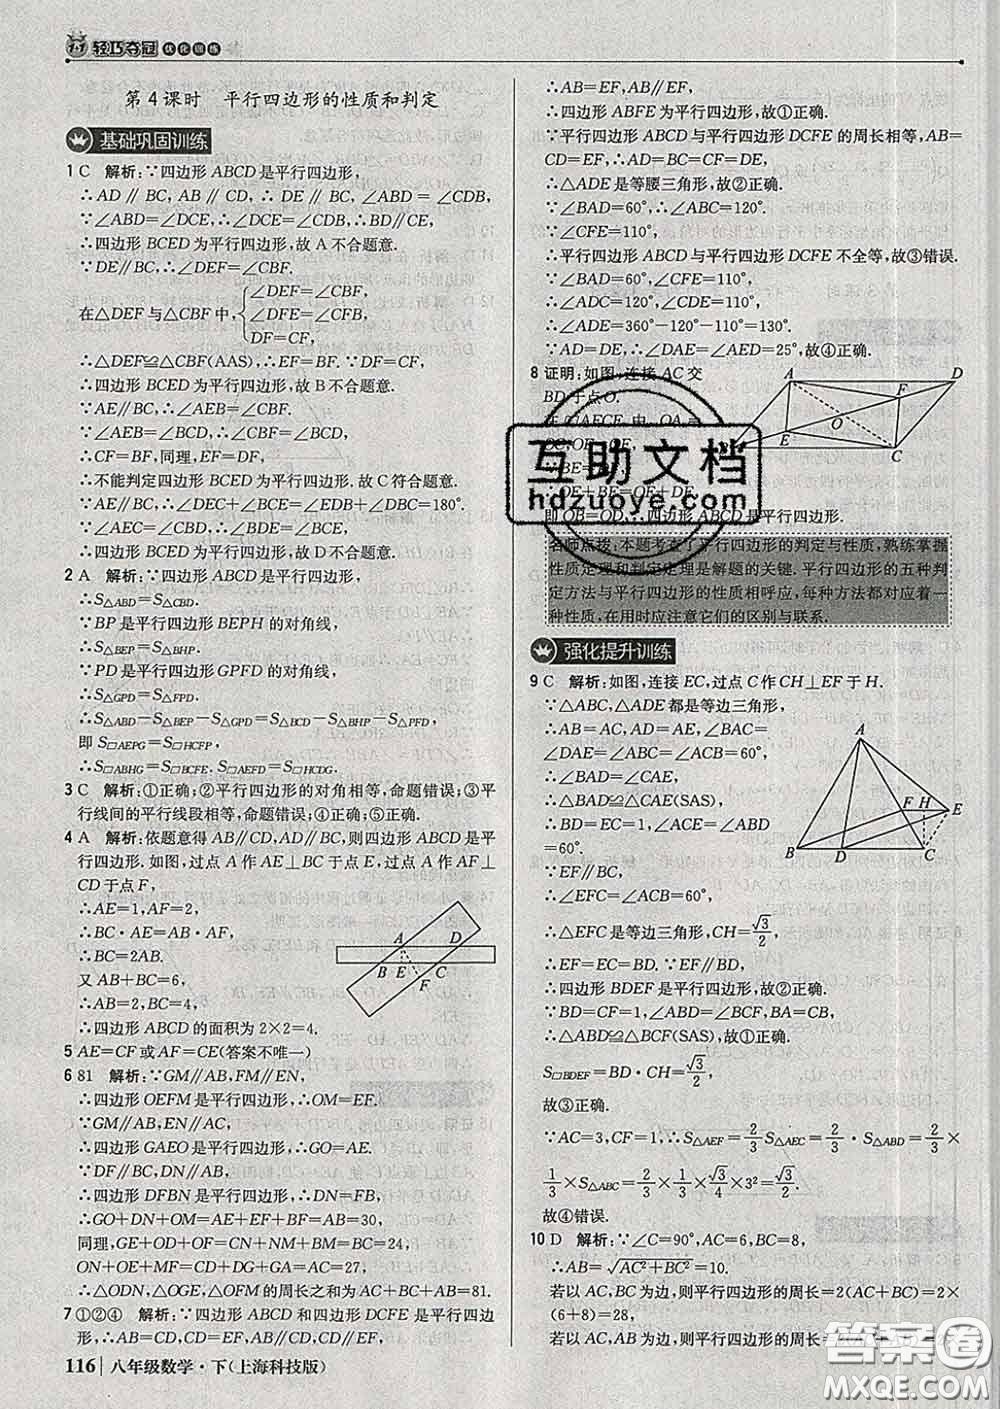 1+1 轻巧夺冠 优化训练
第4课时 平行四边形的性质和判定
基础巩固训练
1 C 解析:∵四边形ABCD是平行四边形,
∴AD∥BC,AB∥CD,∴DE∥BC,∠ABD=∠CDB,
∵∠ABD=∠DCE,∴∠DCE=∠CDB,∴BD∥CE,
∴四边形BCED为平行四边形,故A不合题意.
∵DE∥BC,∴∠DEF=∠CBF.
在△DEF与△CBF中,{∠DEF=∠CBF,
∠DFE=∠CFB,
DF=CF,
∴△DEF≌△CBF(AAS),∴EF=BF.∵DF=CF,
∴四边形BCED为平行四边形,故B不合题意.
∵AE∥BC,∴∠AEB=∠CBF.
∵∠AEB=∠BCD,∴∠CBF=∠BCD,
∴CF=BF,同理,EF=DF,
∴不能判定四边形BCED为平行四边形.故C符合题意.
∵AE∥BC,∴∠DEC+∠BCE=∠EDB+∠DBC=180°.
∵∠AEC=∠CBD,∴∠BDE=∠BCE,
∴四边形BCED为平行四边形,故D不合题意.
2 A 解析:∵四边形ABCD是平行四边形,
∴S△ABD=S△CBD.
∵BP是平行四边形BEPH的对角线,
∴S△BEP=S△BHP.
∵PD是平行四边形GPFD的对角线,
∴S△GPD=S△FPD.
∴S△ABD-S△BEP-S△GPD=S△BCD-S△BHP-S△PFD,
即S□AEPG=S□HCFP,
∴S□ABHG=S□BCFE,S□AEFD=S□HCDG.
3 C 解析:①正确;②平行四边形的对角相等,命题错误;③平
行线间的平行线段相等,命题错误;④正确;⑤正确.
4 A 解析:依题意得AB∥CD,AD∥BC,则四边形ABCD是平
行四边形.如图,过点A作AE⊥BC于点E,过点A作AF⊥
CD于点F,
∴AE=1,AF=2,
∴BC·AE=AB·AF,
∴BC=2AB.
又AB+BC=6,
∴AB=2,BC=4,
∴四边形ABCD的面积为2×2=4.
A D B E C F
5 AE=CF或AF=CE(答案不唯一)
6 81 解析:∵GM∥AB,FM∥EN,
∴四边形OEFM是平行四边形,∴OM=EF.
∵GM∥AB,EN∥AC,
∴四边形GAEO是平行四边形,∴GO=AE.
∴四边形DFBN是平行四边形,∴DN=FB,
∴GO+DN+OM=AE+EF+FB=AB=30,
同理,GE+OE+CN=AG+GC=BC=24,
OE+MF+OD=CD+DG+GA=AC=27,
∴△ODN,△OGE,△OFM的周长之和为AB+BC+AC=81.
7 ①②④ 解析:∵四边形ABCD和四边形DCFE是平行四边
形,∴AB=CD,CD=EF,AB∥CD,CD∥EF,
116 八年级数学·下(上海科技版)
∴AB=EF,AB∥EF,
∴四边形ABFE为平行四边形,故①正确.
∵平行四边形ABCD与平行四边形DCFE的周长相等,AB=
CD=EF,∴AD=BC=CF=DE,
∴△ADE是等腰三角形,故②正确.
∵∠BAD=60°,∴∠ABC=120°.
∵∠CFE=110°,
∴平行四边形ABCD与平行四边形DCFE不全等,故③错误.
∵∠BAD=60°,∠CFE=110°,
∴∠ADC=120°,∠CDE=110°,
∴∠ADE=360°-120°-110°=130°.
∵AD=DE,∴∠DAE=∠AED=25°,故④正确.
8 证明:如图,连接AC交
BD于点O.
在□AECF中,OA=
OC,OE=OF,
∵BE=DF,
∴OE+BE=OF+DF,
即OB=OD,∴四边形ABCD是平行四边形.
A D F E O C
名师点拨:本题考查了平行四边形的判定与性质,熟练掌握
性质定理和判定定理是解题的关键.平行四边形的五种判
定方法与平行四边形的性质相呼应,每种方法都对应着一
种性质,在用时应注意它们的区别与联系.
强化提升训练
9 C 解析:如图,连接EC,过点C作CH⊥EF于H.
∵△ABC,△ADE都是等边三角形,
∴AB=AC,AD=AE,∠BAC=
∠DAE=∠ABC=∠ACB=60°,
∴∠BAD=∠CAE,
∴△BAD≌△CAE,
∴BD=EC=1,∠ACE=∠ABD
=60°.
∵EF∥BC,
∴∠EFC=∠ACB=60°,
∴△EFC是等边三角形,CH=√3/2,
∴EF=EC=BD.∵EF∥BD,
∴四边形BDEF是平行四边形,故②正确.
∵BD=CF=1,∠ABD=∠BCF,BA=CB,
∴△ABD≌△BCF(SAS),故①正确.
S□BDEF=BD·CH=√3/2,
故③正确.
∵AC=3,CF=1,∴S△AEF=2/3S△AEC=2/3·S△ABD=2/3×
1/3×S△ABC=2/3×1/3×√3/4×3²=√3/2.
故④错误.
A F H E B D C
10 D 解析:∵∠C=90°,AC=6,BC=8,
∴AB=√AC²+BC²=10.
若以AC,BC为边,则平行四边形的周长=2(AC+BC)=2×
(6+8)=28,
若以AC,AB为边,则平行四边形的周长=
互助文档
hdzuoye.com
答案圈
MXQE.COM